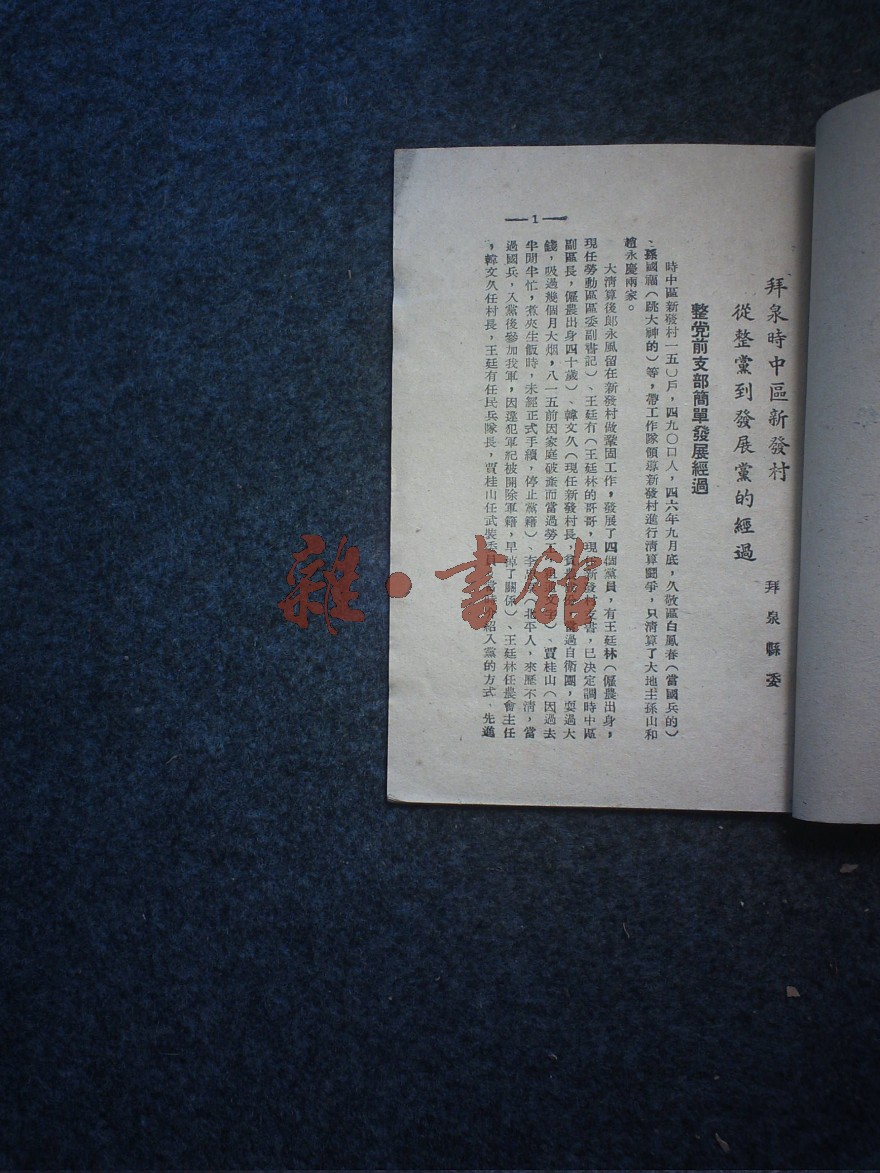 拜泉時中區新發村
從整黨到發展黨的經過
拜泉縣委
整党前支部簡單發展經過
時中區新發村一五〇戶，四九〇口人，四六年九月底，久敬區白鳳春（當國兵的）
、孫國福（跳大神的）等，帶工作隊領導新發村進行清算鬪爭，只清算了大地主孫山和
趙永慶兩家。
大清算後郎永風留在新發村做鞏固工作，發展了四個黨員，有王廷林（僱農出身，
現任勞動區區委副書記）、王廷有（王廷林的哥哥，現任新發村支書，已決定調時中區
副區長，僱農出身四十歲）、韓文久（現任新發村長，貧農 過自衛團，耍過大
錢，吸過幾個月大烟，八一五前因家庭破產而當過勞工 ）、賈桂山（因過去
半閒半忙，煮夾生飯時，未經正式手續，停止黨籍）、李 （北平人，來歷不清，當
過國兵，入黨後參加我軍，因違犯軍紀被開除軍籍，早掉了關係）、王廷林任農會主任
，韓文久任村長，王廷有任民兵隊長，賈桂山任武裝委員 紹入黨的方式、先適
—1—
雜·書館